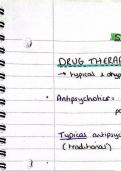 S
DRUG THERAP
→ typical & atyp
• Antipsychotics =
po
Typical antipsyc
(traditional)